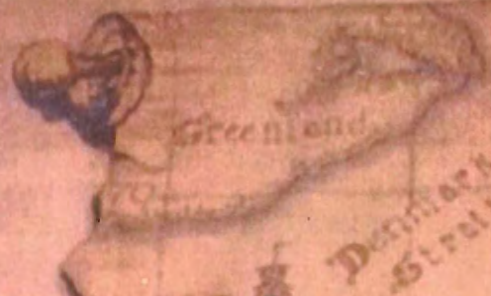 Greenland
70
Denmark
Strait